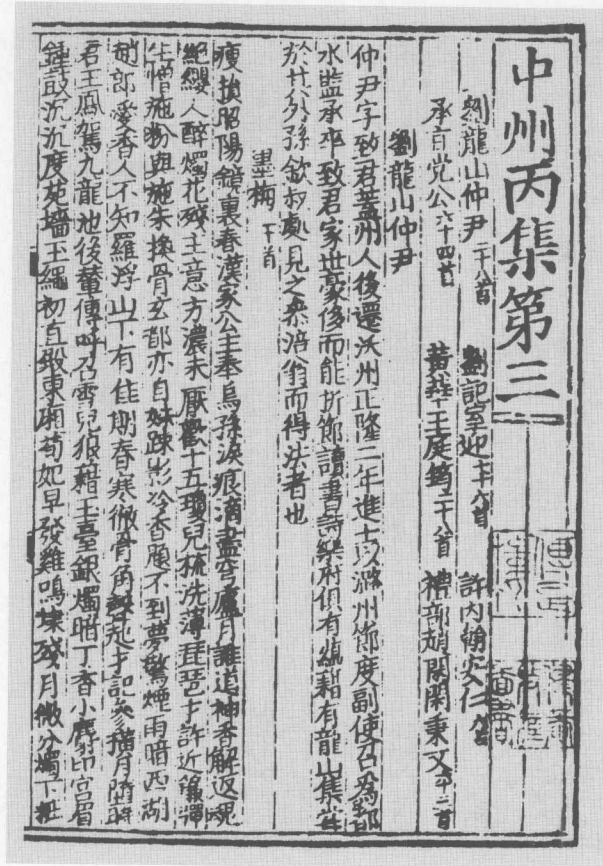 中州丙集第三
劉龍山仲尹二十八首 劉記室迎七十六首 許内翰安仁
承旨党公六十四首 黃華王庭筠二十八首 禮部趙閑閑秉文
劉龍山仲尹
仲尹字致君蓋州人後遷沃州正隆二年進士以潞州節度副使召爲都
水監丞卒致君家世豪侈而能折節讀書詩樂府俱有蘊藉有龍山集甞
於其外孫欽叔處見之參涪翁而得法者也
墨梅十首
瘦損昭陽鏡裏春漢家公主奉烏孫淚痕滴盡穹廬月誰道神香解返魂
絶纓人醉燭花殘主意方濃未厭歡十五瓊兒梳洗薄琵琶才許近簾彈
生憎施粉與施朱換骨玄都亦自姝踈影冷香題不到夢驚煙雨暗西湖
趙郎愛香人不知羅浮山下有佳期春寒徹骨角聲起才記參橫月墮時
君王鳳駕九龍池後輦傳呼召雪兒狼藉玉臺銀燭暗丁香小麝印宮眉
鍾鼓沉沉度苑墻玉繩初直殿東廂荀妃早發雞鳴埭殘月微分燭下粧